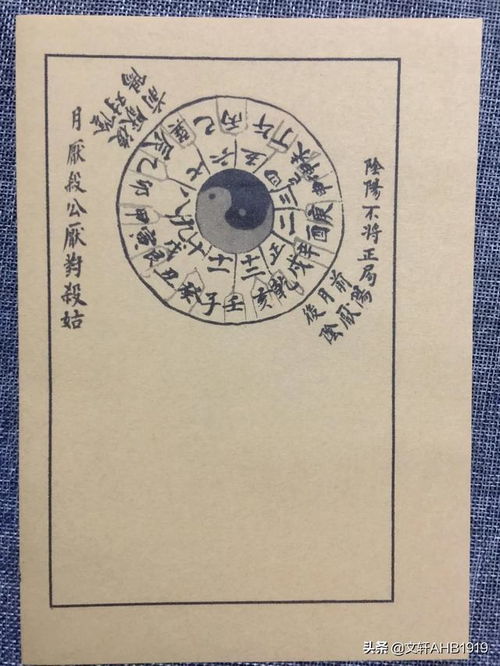 陰陽不將正局
前陽
月厭
後陰
丙
午
丁
未
坤
申
庚
酉
辛
戌
乾
亥
壬
子
癸
丑
艮
寅
甲
卯
乙
辰
巽
巳
正
二
三
四
五
六
七
八
九
十
十一
十二
月厭殺公厭對殺姑
头条 @文轩AHB1919